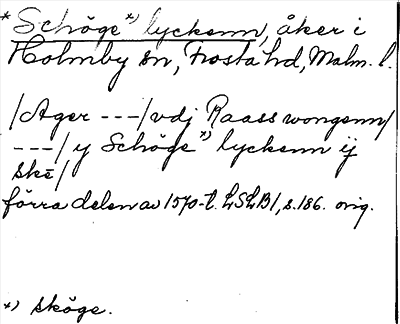 * Schöge *) lyckenn, åker i
Holmby sn, Frosta hd, Malm. l.
/Ager ---/ vdj Raass wongenn/
---/ y Schöge *) lyckenn ij
ske/
förra delen av 1570-t. LSLB1, s. 186. orig.
*) sköge.